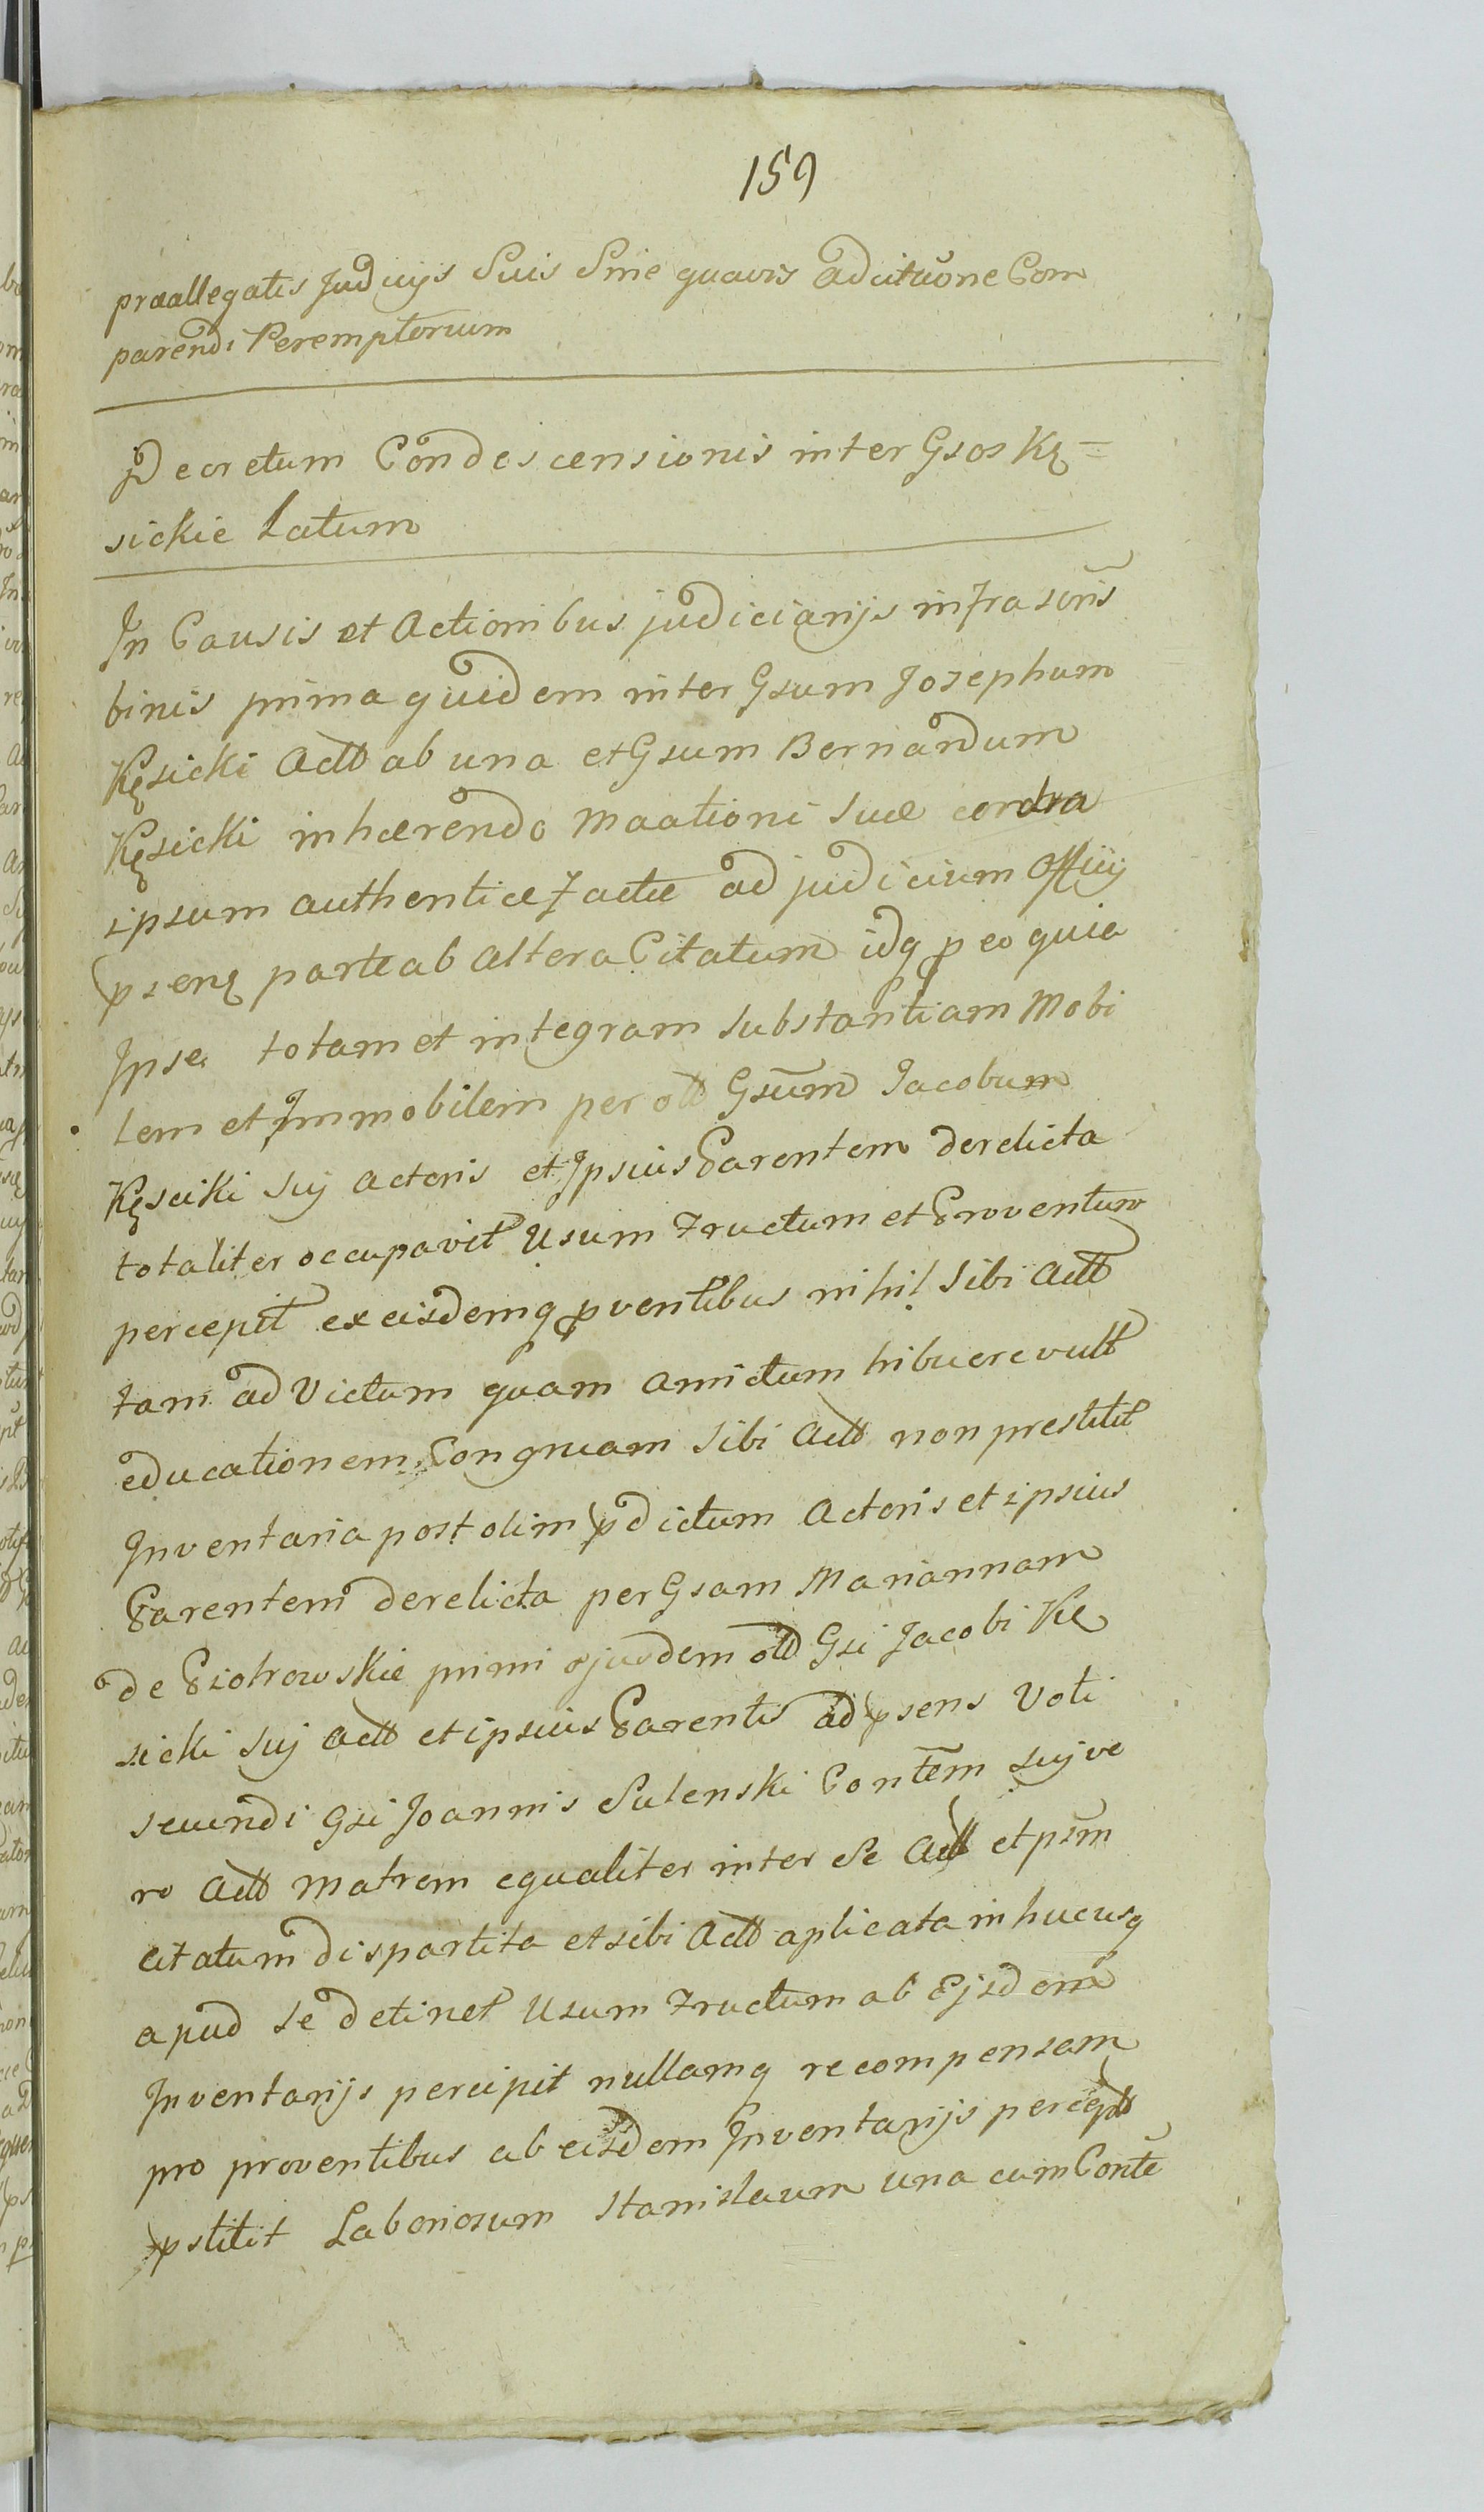 159
præallegatis Judicijs Suis Sine quavis adcitatione Com
parendi Peremptorium
Decretum Condescensionis inter Gsos Kę=
sickie Latum
In Causis et Actionibus judiciarijs infrascris
binis prima quidem inter Gsum Josephum
Kęsicki Actt ab una et Gsum Bernardum
Kęsicki inhærendo Maationi suæ contra
ipsum authenticæ factæ ad judicium Offij
psenę parte ab altera Citatum idq p eo quia
Ipse totam et integram substantiam Mobi
lem et Immobilem per ott Gsum Jacobum
Kęsciki sui Actoris et Ipsius Parentem derelicta
totaliter occupavit Usum Fructum et Proventum
percepit ex eisdemq pventibus nihil sibi Actt
tam ad Victum quam amictum tribuere vult
educationem Congruam sibi Actt non prestitit
Inventaria post olim pdictum Actoris et ipsius
Parentem derelicta per Gsam Mariannam
de Piotrowskie primi ejusdem ott Gsi Jacobi Kę
sicki suj Actt et ipsius Parentis ad psens Voti
secundi Gsi Joannis Sulenski Contem suj ve
ro Actt Matrem equaliter inter se Actt et psm
citatum dispartita et sibi Actt aplicata in hucusq
apud se detinet Usum Fructum ab Ejsdem
Inventarijs percipit nullamq recompensam
pro proventibus ab eisdem Inventarijs percept
pstitit Laboriosum Stanislaum una cum Conte